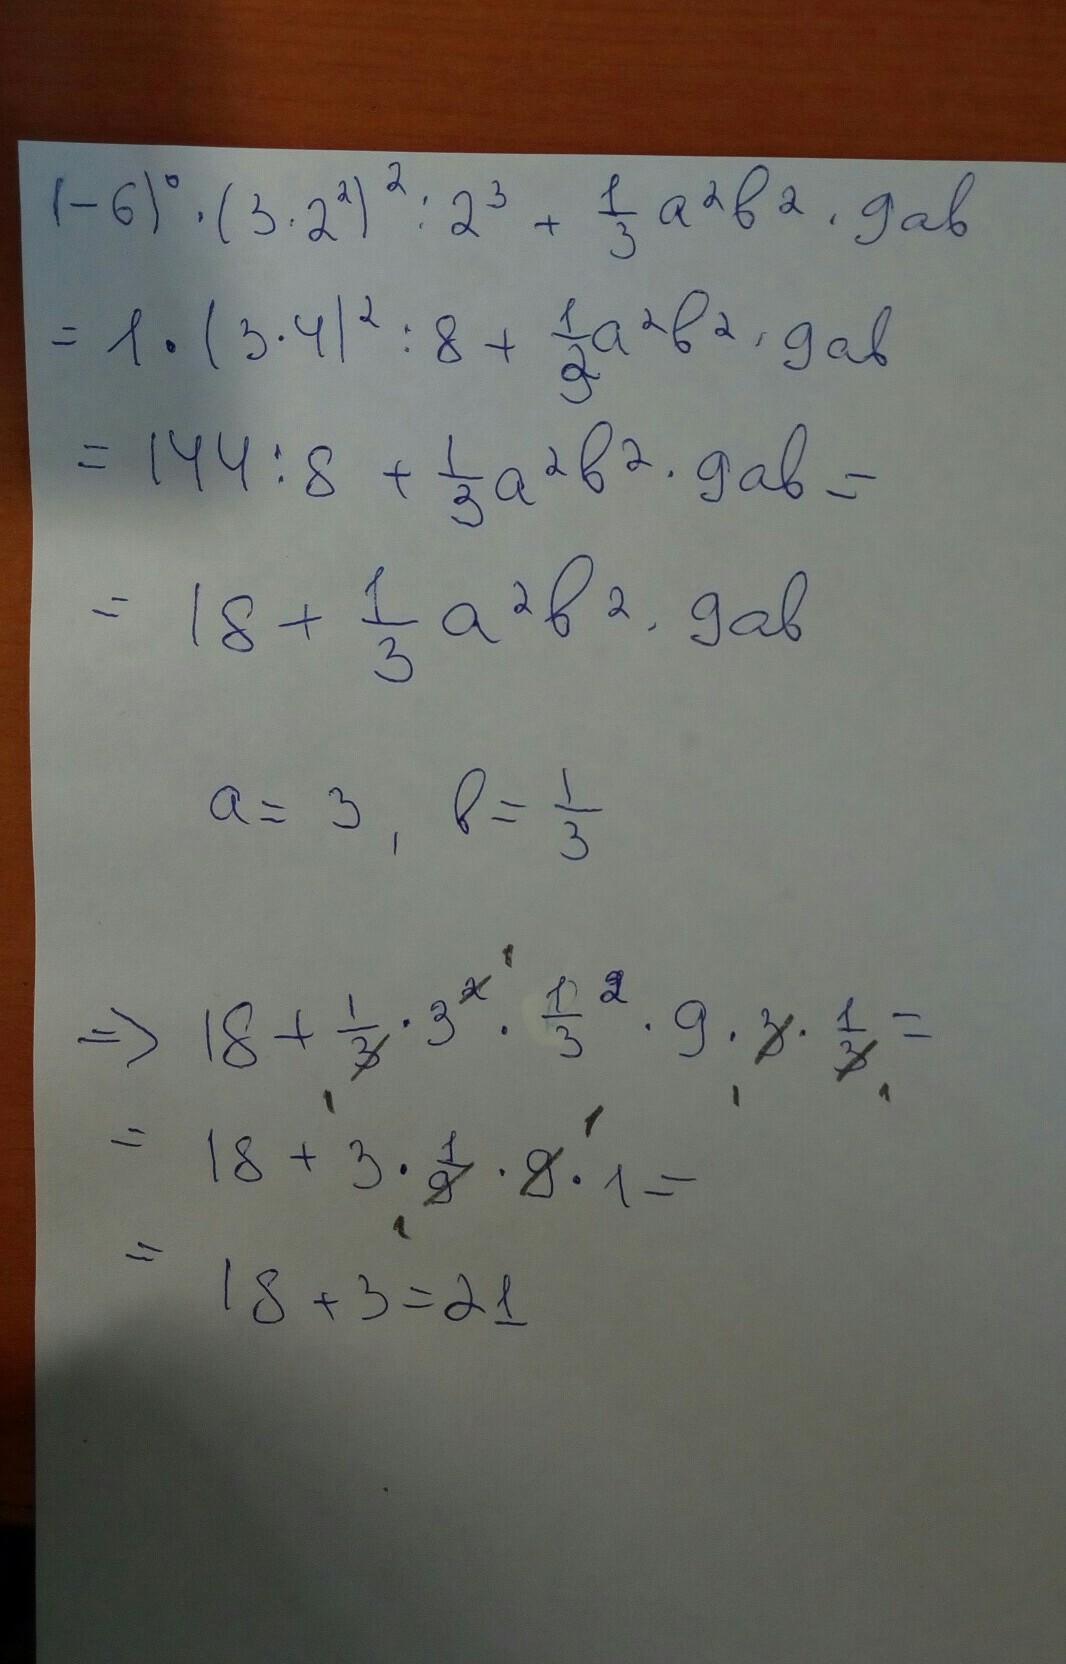 (-6)⁰·(3·2²)²:2³ + 1/3 a²b²·9ab
= 1·(3·4)²:8 + 1/3 a²b²·9ab
= 144:8 + 1/3 a²b²·9ab =
= 18 + 1/3 a²b²·9ab
a = 3, b = 1/3
=> 18 + 1/3·3²·1/3²·9·3·1/3 =
= 18 + 3·1/9·9·1 =
= 18 + 3 = 21